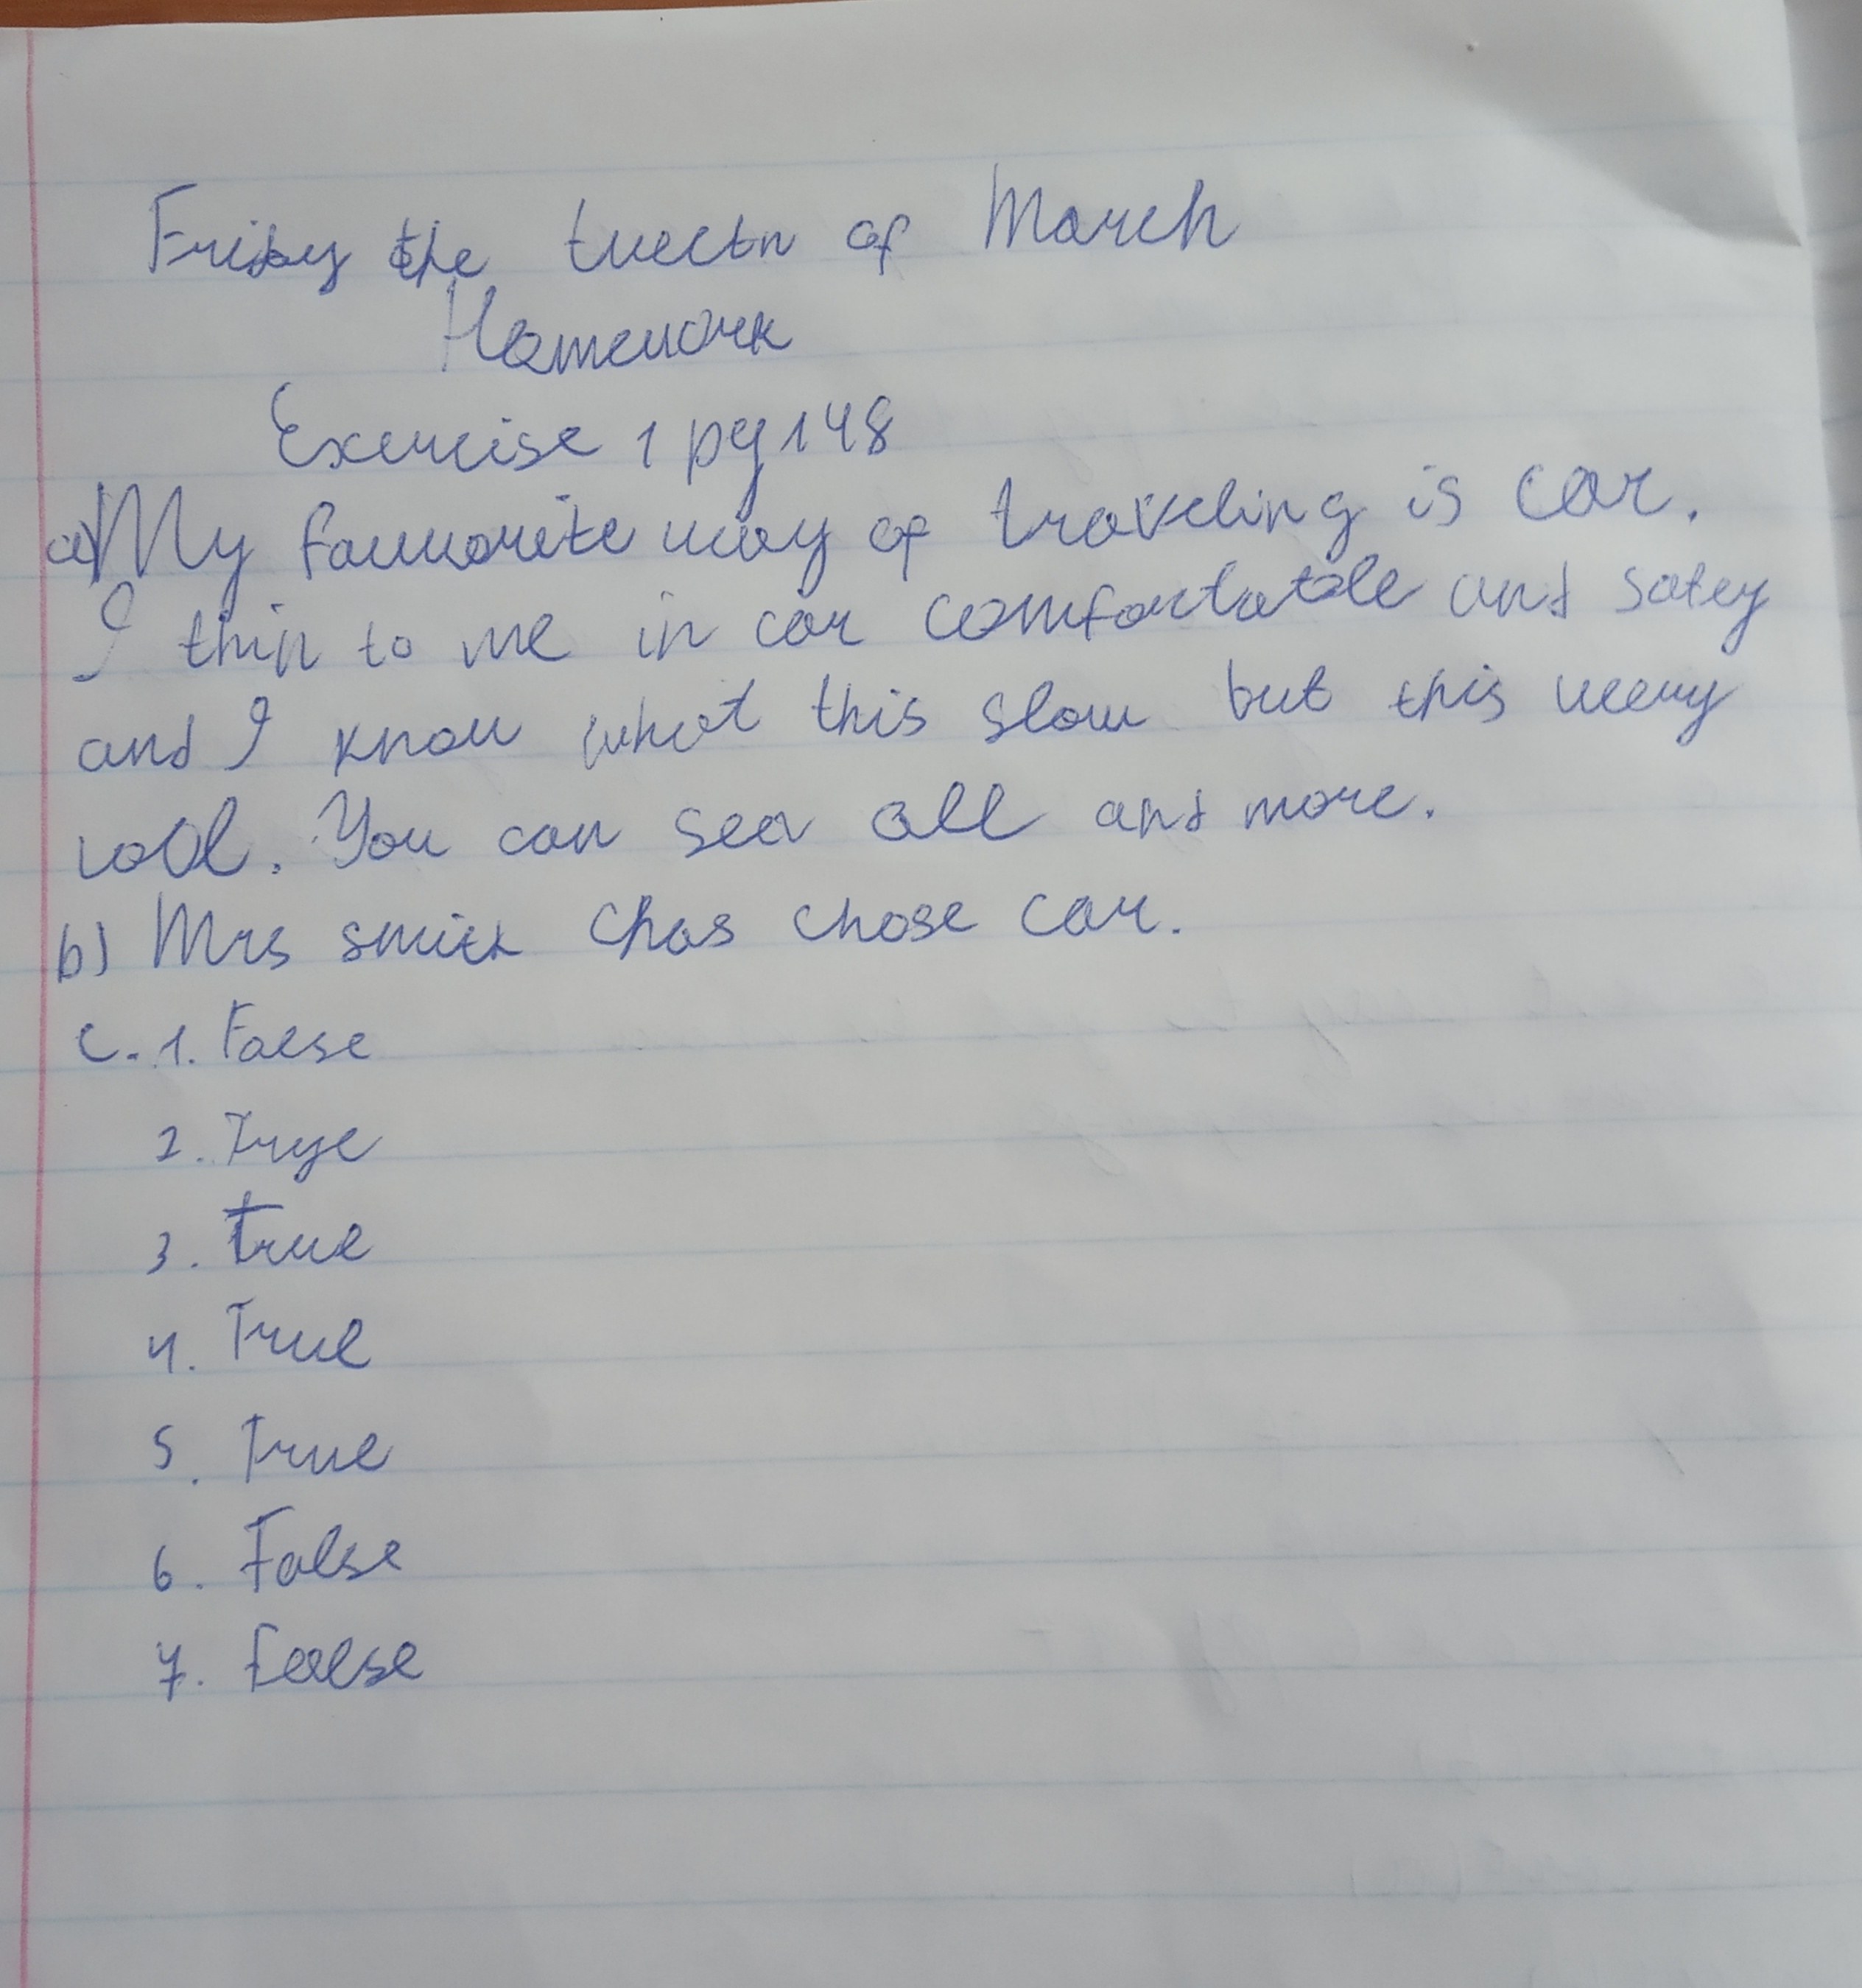 Friday the tvelth of March
Homework
Exercise 1 pg 148
a) My favuorite way of traveling is car.
I thin to me in car comfortatble and safey
and I know what this slow but this very
cool. You can see all and more.
b) Mrs smith chas chose car.
c. 1. False
2. Trye
3. True
4. True
5. True
6. False
7. False